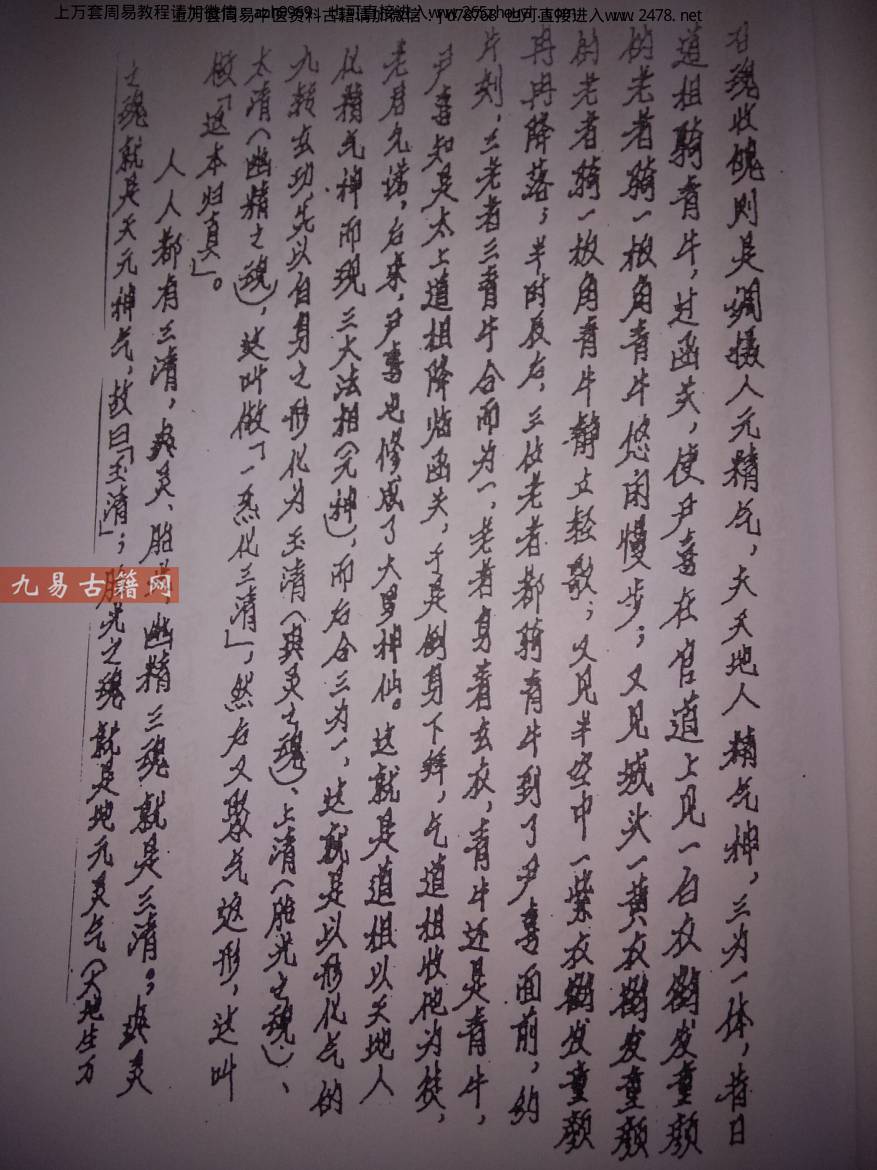 上万套周易教程请加微信
也可直接进入www.265zhouyi.com
上万套周易中医资料古籍请加微信
也可直接进入www.2478.net
召魂收魄则是调摄人元精气，夫天地人精气神，三为一体，昔日
道祖骑青牛，过函关，使尹喜在官道上见一白衣鹤发童颜
的老者骑一板角青牛悠闲慢步；又见城头一黄衣鹤发童颜
的老者骑一板角青牛静立轻歌；又见半空中一紫衣鹤发童颜
冉冉降落；半时辰后，三位老者都骑青牛到了尹喜面前，约
片刻，三老者三青牛合而为一，老者身着玄衣，青牛还是青牛，
尹喜知是太上道祖降临函关，于是倒身下拜，乞道祖收他为徒，
老君允诺，后来，尹喜也修成了大罗神仙。这就是道祖以天地人
化精气神而现三大法相（元神），而后合三为一，这就是以形化气的
九转玄功，先以自身之形化为玉清（爽灵之魂）、上清（胎光之魂）、
太清（幽精之魂），这叫做「一炁化三清」，然后又聚气返形，这叫
做「返本归真」。
人人都有三清，爽灵、胎光、幽精三魂就是三清。；爽灵
之魂就是天元神气，故曰「玉清」；胎光之魂就是地元灵气（天地生万
九易古籍网